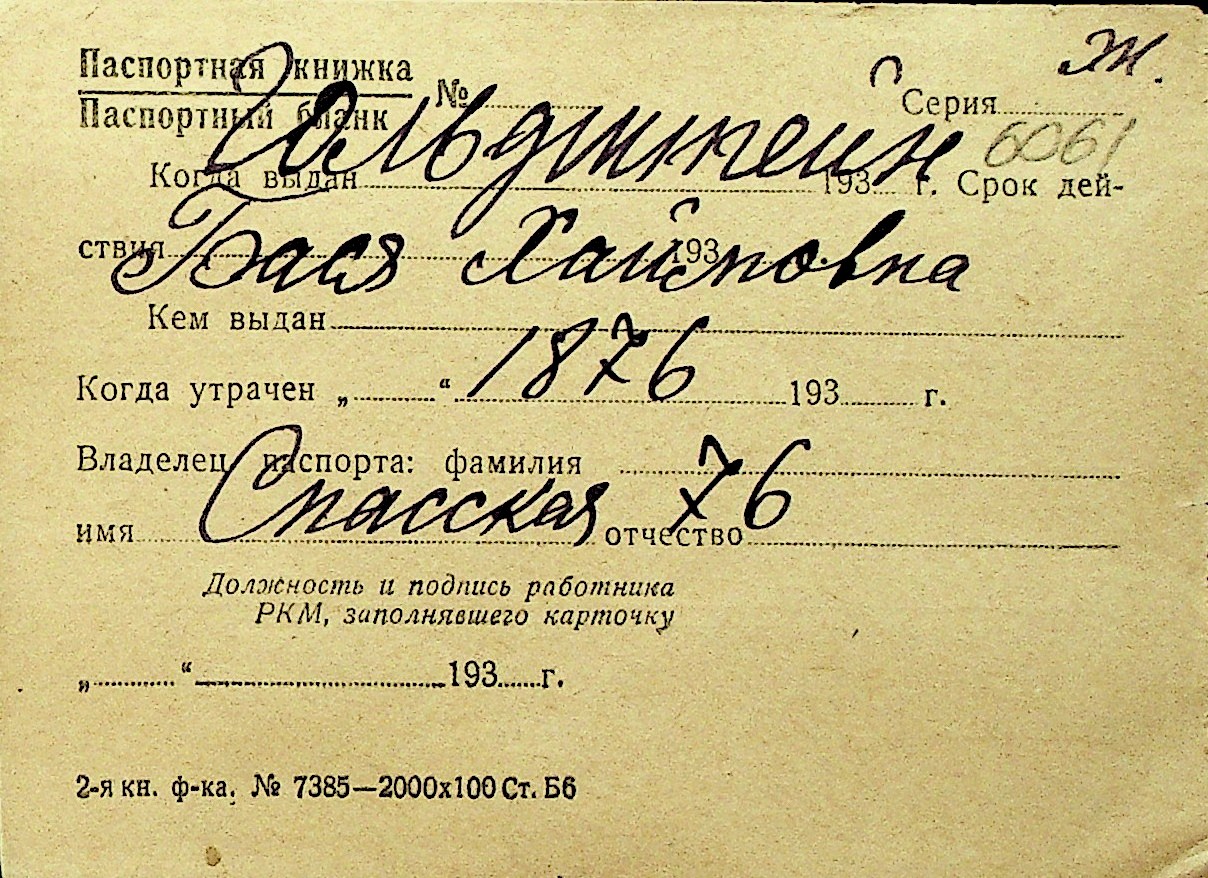 Ж.
Паспортная книжка
Паспортный бланк № Серия
Гольдштейн 6061
Когда выдан 193 г. Срок дей-
ствия 193
Бася Хаймовна
Кем выдан
1876
Когда утрачен „ “ 193 г.
Владелец паспорта: фамилия
Спасская 76
имя отчество
Должность и подпись работника
РКМ, заполнявшего карточку
„ “ 193 г.
2-я кн. ф-ка. № 7385—2000х100 Ст. Б6